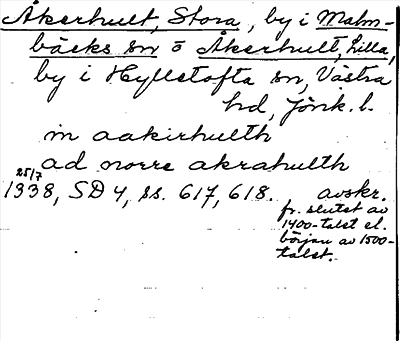 Åkerhult, Stora, by i Malm-
bäcks sn o Åkerhult, Lilla,
by i Hyllstofta sn, Västra
hd, Jönk. l.
in aakirhulth
ad norre akrahulth
25/7
1338, SD 4, ss. 617, 618. avskr.
fr. slutet av
1400-talet el.
början av 1500-
talet.